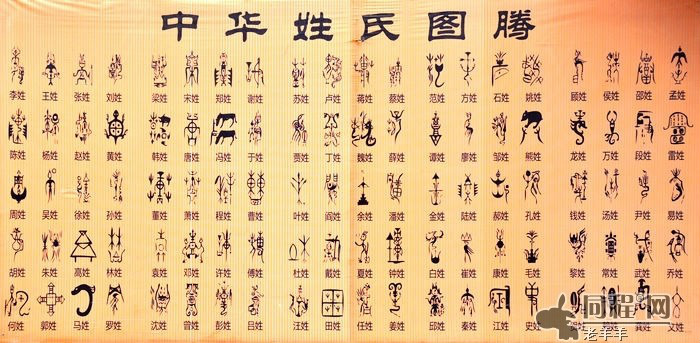 中华姓氏图腾
李姓 王姓 张姓 刘姓 梁姓 宋姓 郑姓 谢姓 苏姓 卢姓 蒋姓 蔡姓 范姓 方姓 石姓 姚姓 顾姓 侯姓 邵姓 孟姓
陈姓 杨姓 赵姓 黄姓 韩姓 唐姓 冯姓 于姓 贾姓 丁姓 魏姓 薛姓 谭姓 廖姓 邹姓 熊姓 龙姓 万姓 段姓 雷姓
周姓 吴姓 徐姓 孙姓 董姓 萧姓 程姓 曹姓 叶姓 阎姓 余姓 潘姓 金姓 陆姓 郝姓 孔姓 钱姓 汤姓 尹姓 易姓
胡姓 朱姓 高姓 林姓 袁姓 邓姓 许姓 傅姓 杜姓 戴姓 夏姓 钟姓 白姓 崔姓 康姓 毛姓 黎姓 常姓 武姓 乔姓
何姓 郭姓 马姓 罗姓 沈姓 曾姓 彭姓 吕姓 汪姓 田姓 任姓 姜姓 邱姓 秦姓 江姓 史姓 龚姓 文姓
同程网
老羊羊